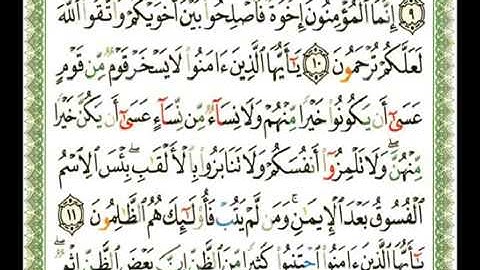 ٩ إِنَّمَا ٱلْمُؤْمِنُونَ إِخْوَةٌ فَأَصْلِحُوا۟ بَيْنَ أَخَوَيْكُمْ وَٱتَّقُوا۟ ٱللَّهَ
لَعَلَّكُمْ تُرْحَمُونَ ١٠ يَٰٓأَيُّهَا ٱلَّذِينَ ءَامَنُوا۟ لَا يَسْخَرْ قَوْمٌ مِّن قَوْمٍ
عَسَىٰٓ أَن يَكُونُوا۟ خَيْرًا مِّنْهُمْ وَلَا نِسَآءٌ مِّن نِّسَآءٍ عَسَىٰٓ أَن يَكُنَّ خَيْرًا
مِّنْهُنَّ ۖ وَلَا تَلْمِزُوٓا۟ أَنفُسَكُمْ وَلَا تَنَابَزُوا۟ بِٱلْأَلْقَٰبِ ۖ بِئْسَ ٱلِٱسْمُ
ٱلْفُسُوقُ بَعْدَ ٱلْإِيمَٰنِ ۚ وَمَن لَّمْ يَتُبْ فَأُو۟لَٰٓئِكَ هُمُ ٱلظَّٰلِمُونَ ١١
يَٰٓأَيُّهَا ٱلَّذِينَ ءَامَنُوا۟ ٱجْتَنِبُوا۟ كَثِيرًا مِّنَ ٱلظَّنِّ إِنَّ بَعْضَ ٱلظَّنِّ إِثْمٌ ۖ